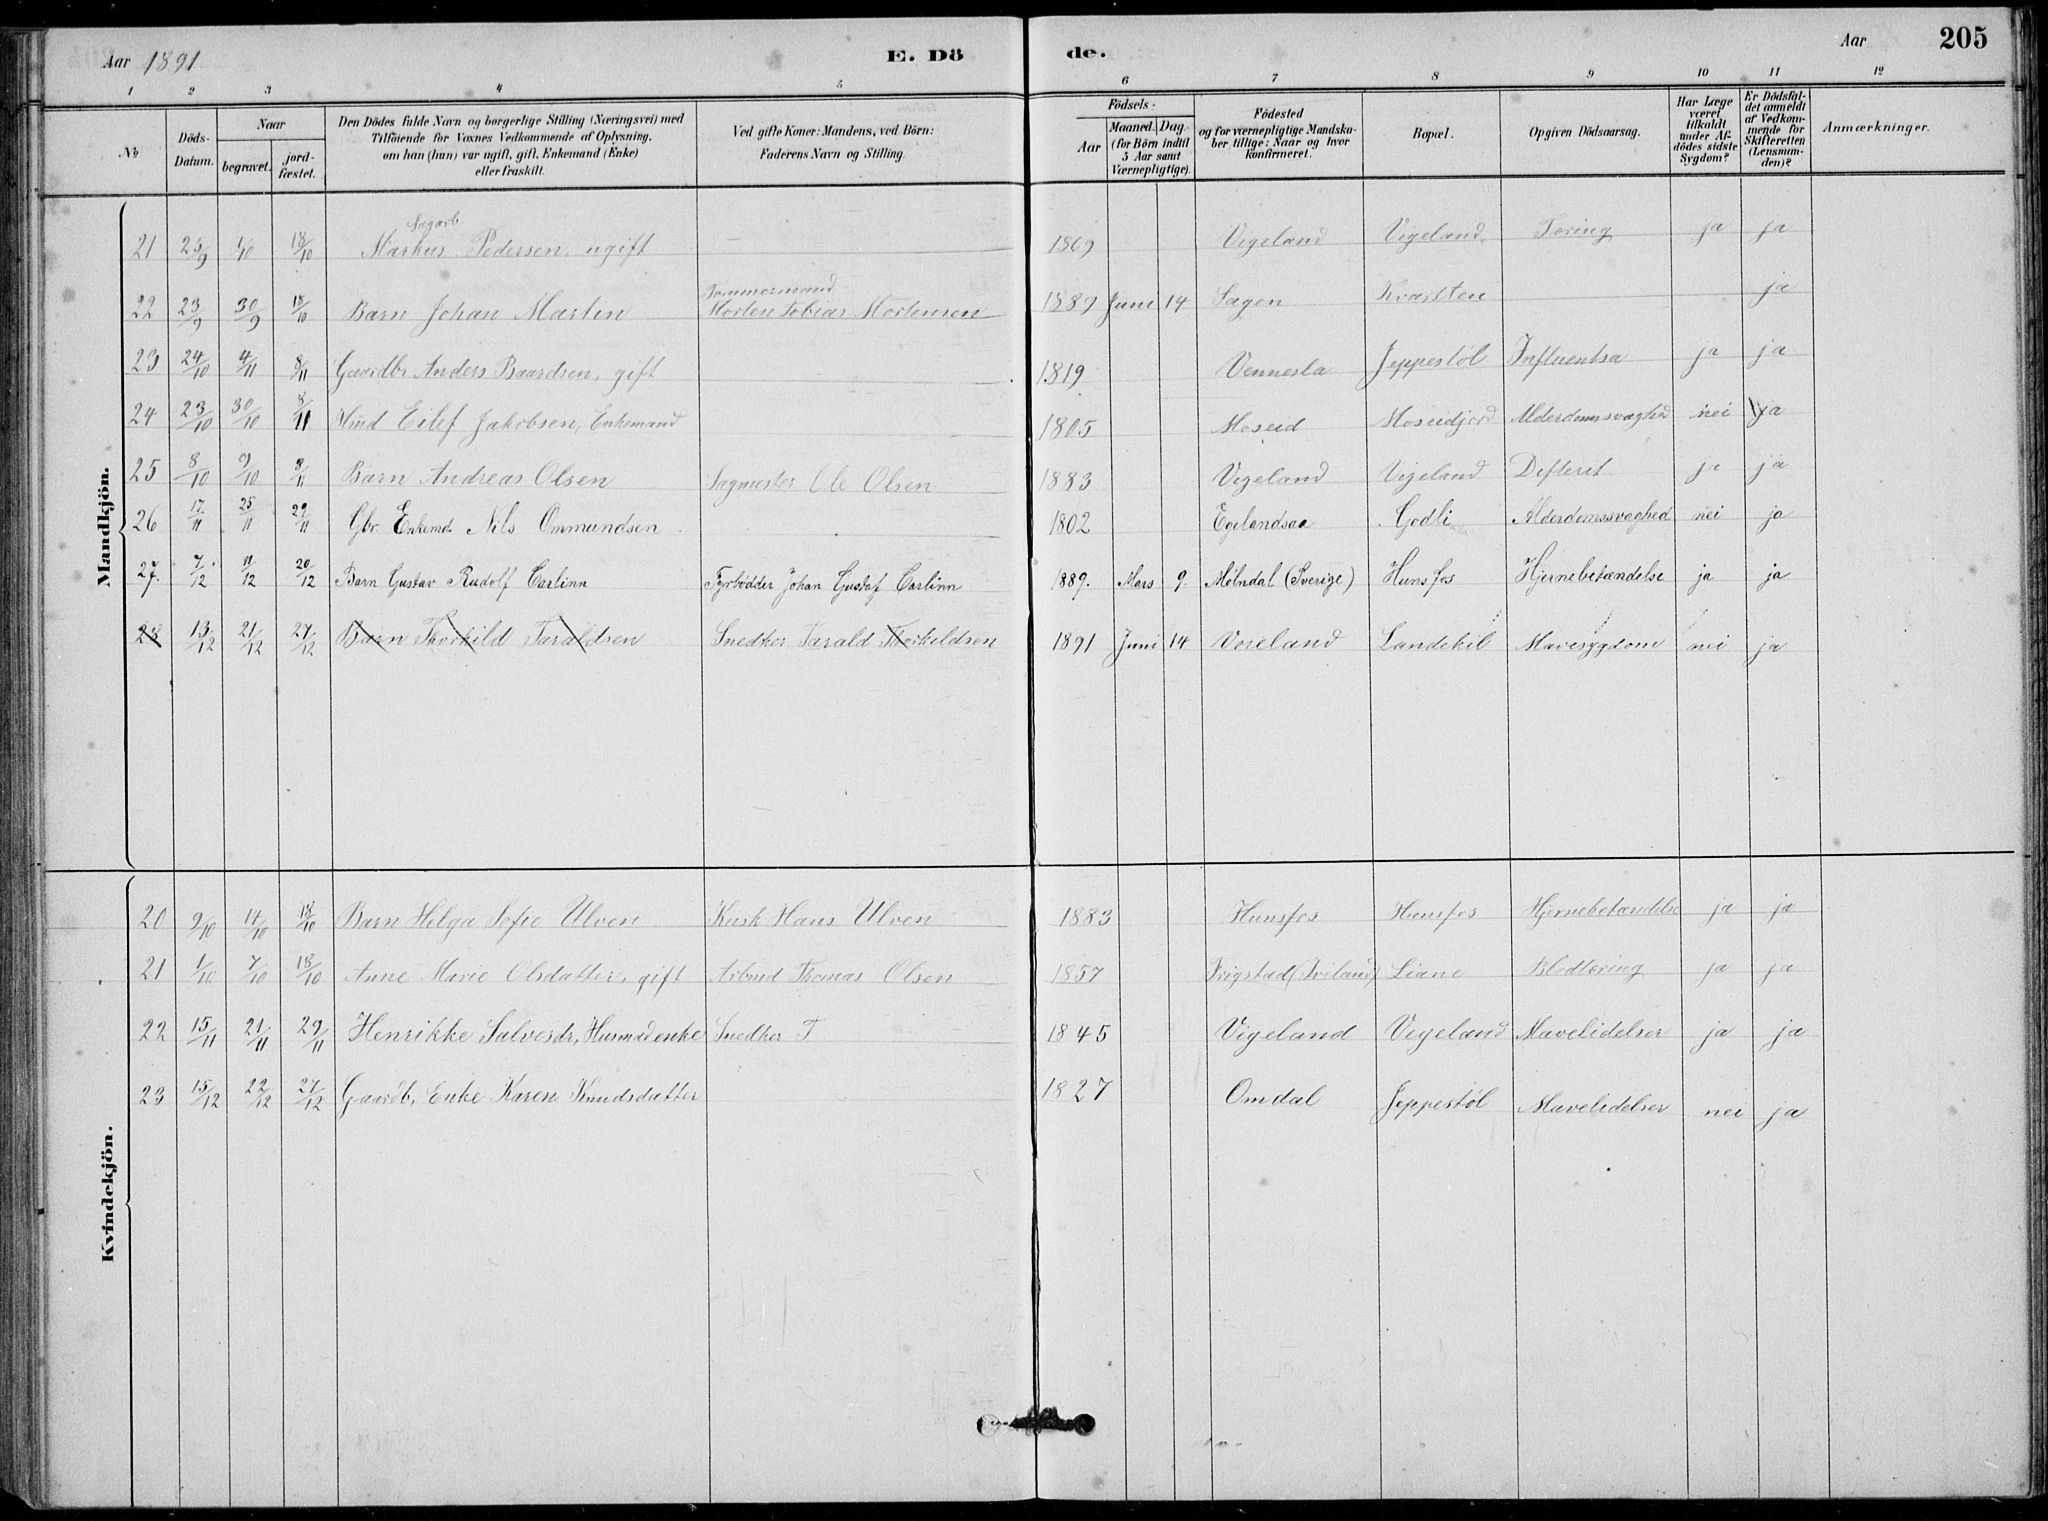 Aar 1891
E. Dö
de.
Aar
205
1 2 3 4 5 6 7 8 9 10 11 12
No
Döds-Datum.
Naar
begravet.
jordfæstet.
Den Dödes fulde Navn og borgerlige Stilling (Næringsvei) med
Tilföiende for Voxnes Vedkommende af Oplysning,
om han (hun) var ugift, gift, Enkemand (Enke)
eller fraskilt.
Ved gifte Koner: Mandens, ved Börn:
Faderens Navn og Stilling.
Födsels-
Aar
Maaned. Dag.
(for Börn indtil
5 Aar samt
Værnepligtige).
Födested
og for værnepligtige Mandska-
ber tillige: Naar og hvor
konfirmeret.
Bopæl.
Opgiven Dödsaarsag.
Har Læge
været
tilkaldt
under Af-
dödes sidste
Sygdom?
Er Dödsfal-
det anmeldt
af Vedkom-
mende for
Skifteretten
(Lensman-
den)?
Anmærkninger.
Mandkjön.
Sagarb
21 25/9 1/10 18/10 Markus Pedersen, ugift 1869 Vigeland Vigeland Tæring ja ja
Tommermand
22 23/9 30/9 18/10 Barn Johan Martin Morten Tobias Mortensen 1889 Juni 14 Sagen Kvarsten ja
23 24/10 4/11 8/11 Gaardbr Anders Baardsen, gift 1819 Vennesla Jeppestöl Influentsa ja ja
24 23/10 30/10 8/11 Eilef Jakobsen, Enkemand 1805 Moseid Moseidjord Alderdomssvaghed nei ja
25 8/10 9/10 8/11 Barn Andreas Olsen Sagmester Ole Olsen 1883 Vigeland Vigeland Defterit ja ja
26 17/11 25/11 29/11 Gbr. Enkemd. Nils Ommundsen 1802 Egelandsaa Godli Alderdomssvaghed nei ja
27. 7/12 11/12 20/12 Barn Gustav Rudolf Carlinn Fyrbødder Johan Gustaf Carlinn 1889. Mars 9. Mölndal (Sverige) Hunsfos Hjernebetændelse ja ja
28 13/12 21/12 27/12 Barn Thorkild Taraldsen Snedker Tarald Thorkeldsen 1891 Juni 14 Voreland Landekil Mavesygdom nei ja
Kvindekjön.
20 9/10 14/10 18/10 Barn Helga Sofie Ulven Kusk Hans Ulven 1883 Hunsfos Hunsfos Hjernebetændelse ja ja
21 1/10 7/10 18/10 Anne Marie Olsdatter, gift Arbmd Thomas Olsen 1857 Frigstad (Iveland) Liane Blodtæring ja ja
22 15/11 21/11 29/11 Henrikke Salvesdr, Husmdenke Snedker T 1845 Vigeland Vigeland Mavelidelser ja ja
23 15/12 22/12 27/12 Gaardb, Enke Karen Knudsdatter 1827 Omdal Jeppestöl Mavelidelser nei ja